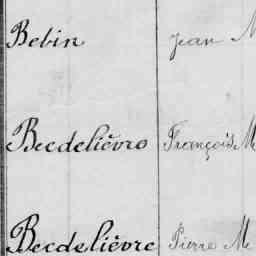 Bebin Jean M
Becdelièvro François M
Becdelièvre Pierre M